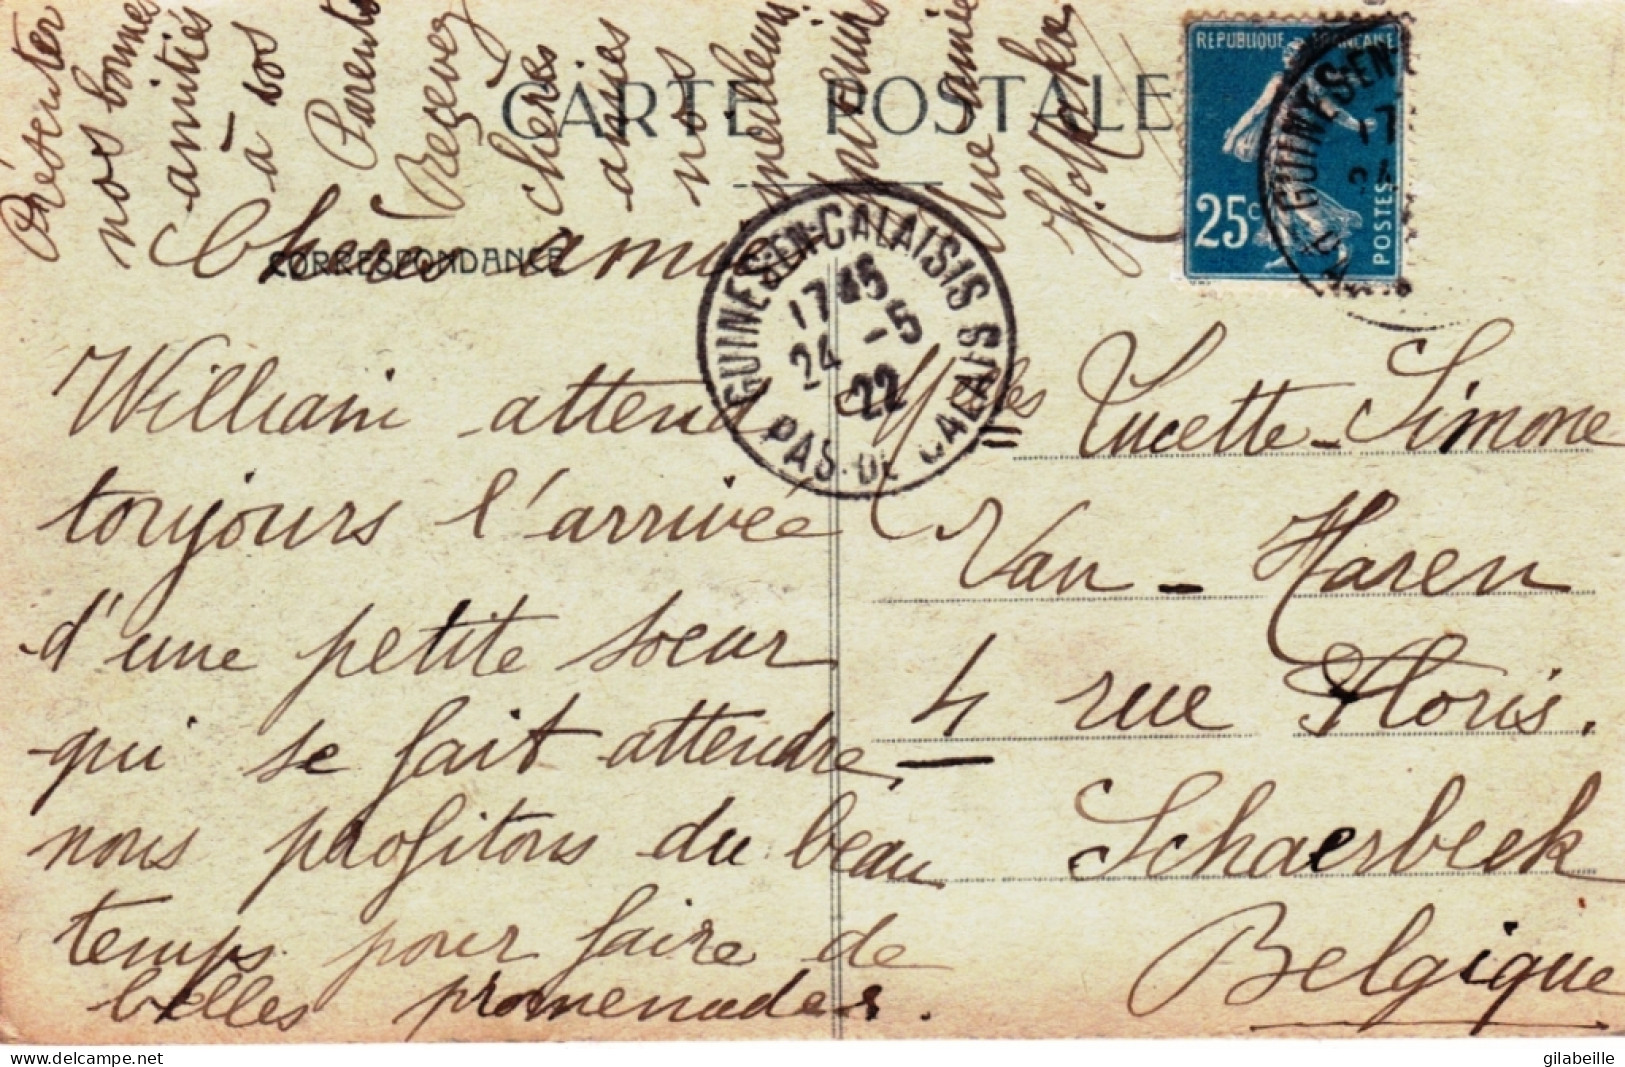 CARTE POSTALE
CORRESPONDANCE
REPUBLIQUE FRANÇAISE
25c
POSTES
GUINES-EN-CALAISIS
17 45
24 - 5
22
PAS-DE CALAIS
Chère amie
William attend
toujours l'arrivée
d'une petite soeur
qui se fait attendre,
nous profitons du beau
temps pour faire de
belles promenades.
Présenter
nos bonnes
amitiés
à vos
Parents
Recevez
chères
amies
nos
meilleurs
Une amie
Melles Lucette-Simone
Van-Haren
4 rue Floris.
Schaerbeek
Belgique
delcampe.net
gilabeille